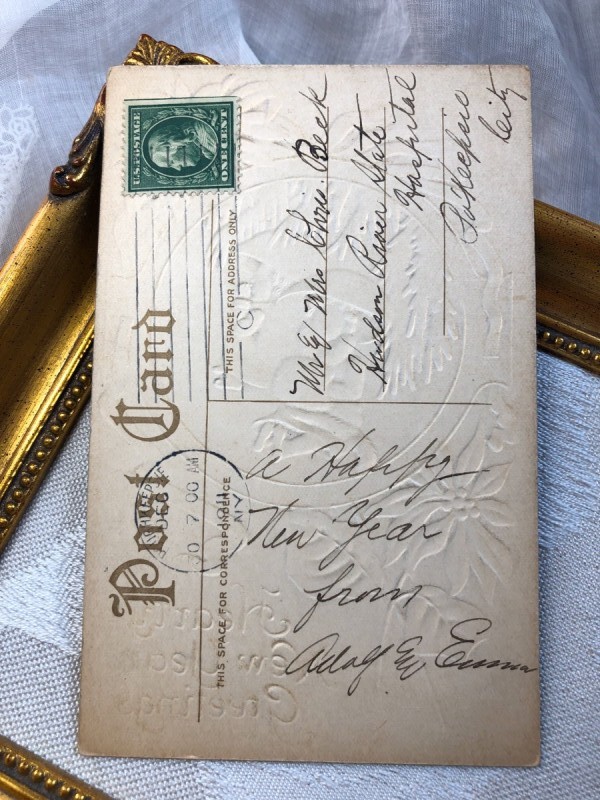 Post Card
THIS SPACE FOR CORRESPONDENCE
THIS SPACE FOR ADDRESS ONLY
U.S. POSTAGE
ONE CENT
DEC
7 00 AM
1911
N.Y.
A Happy
New Year
from
Adolf & Emma
Mr & Mrs Chris Beck
Hudson River State
Hospital
Pokeepsie
City
Hearty
New Year
Greetings